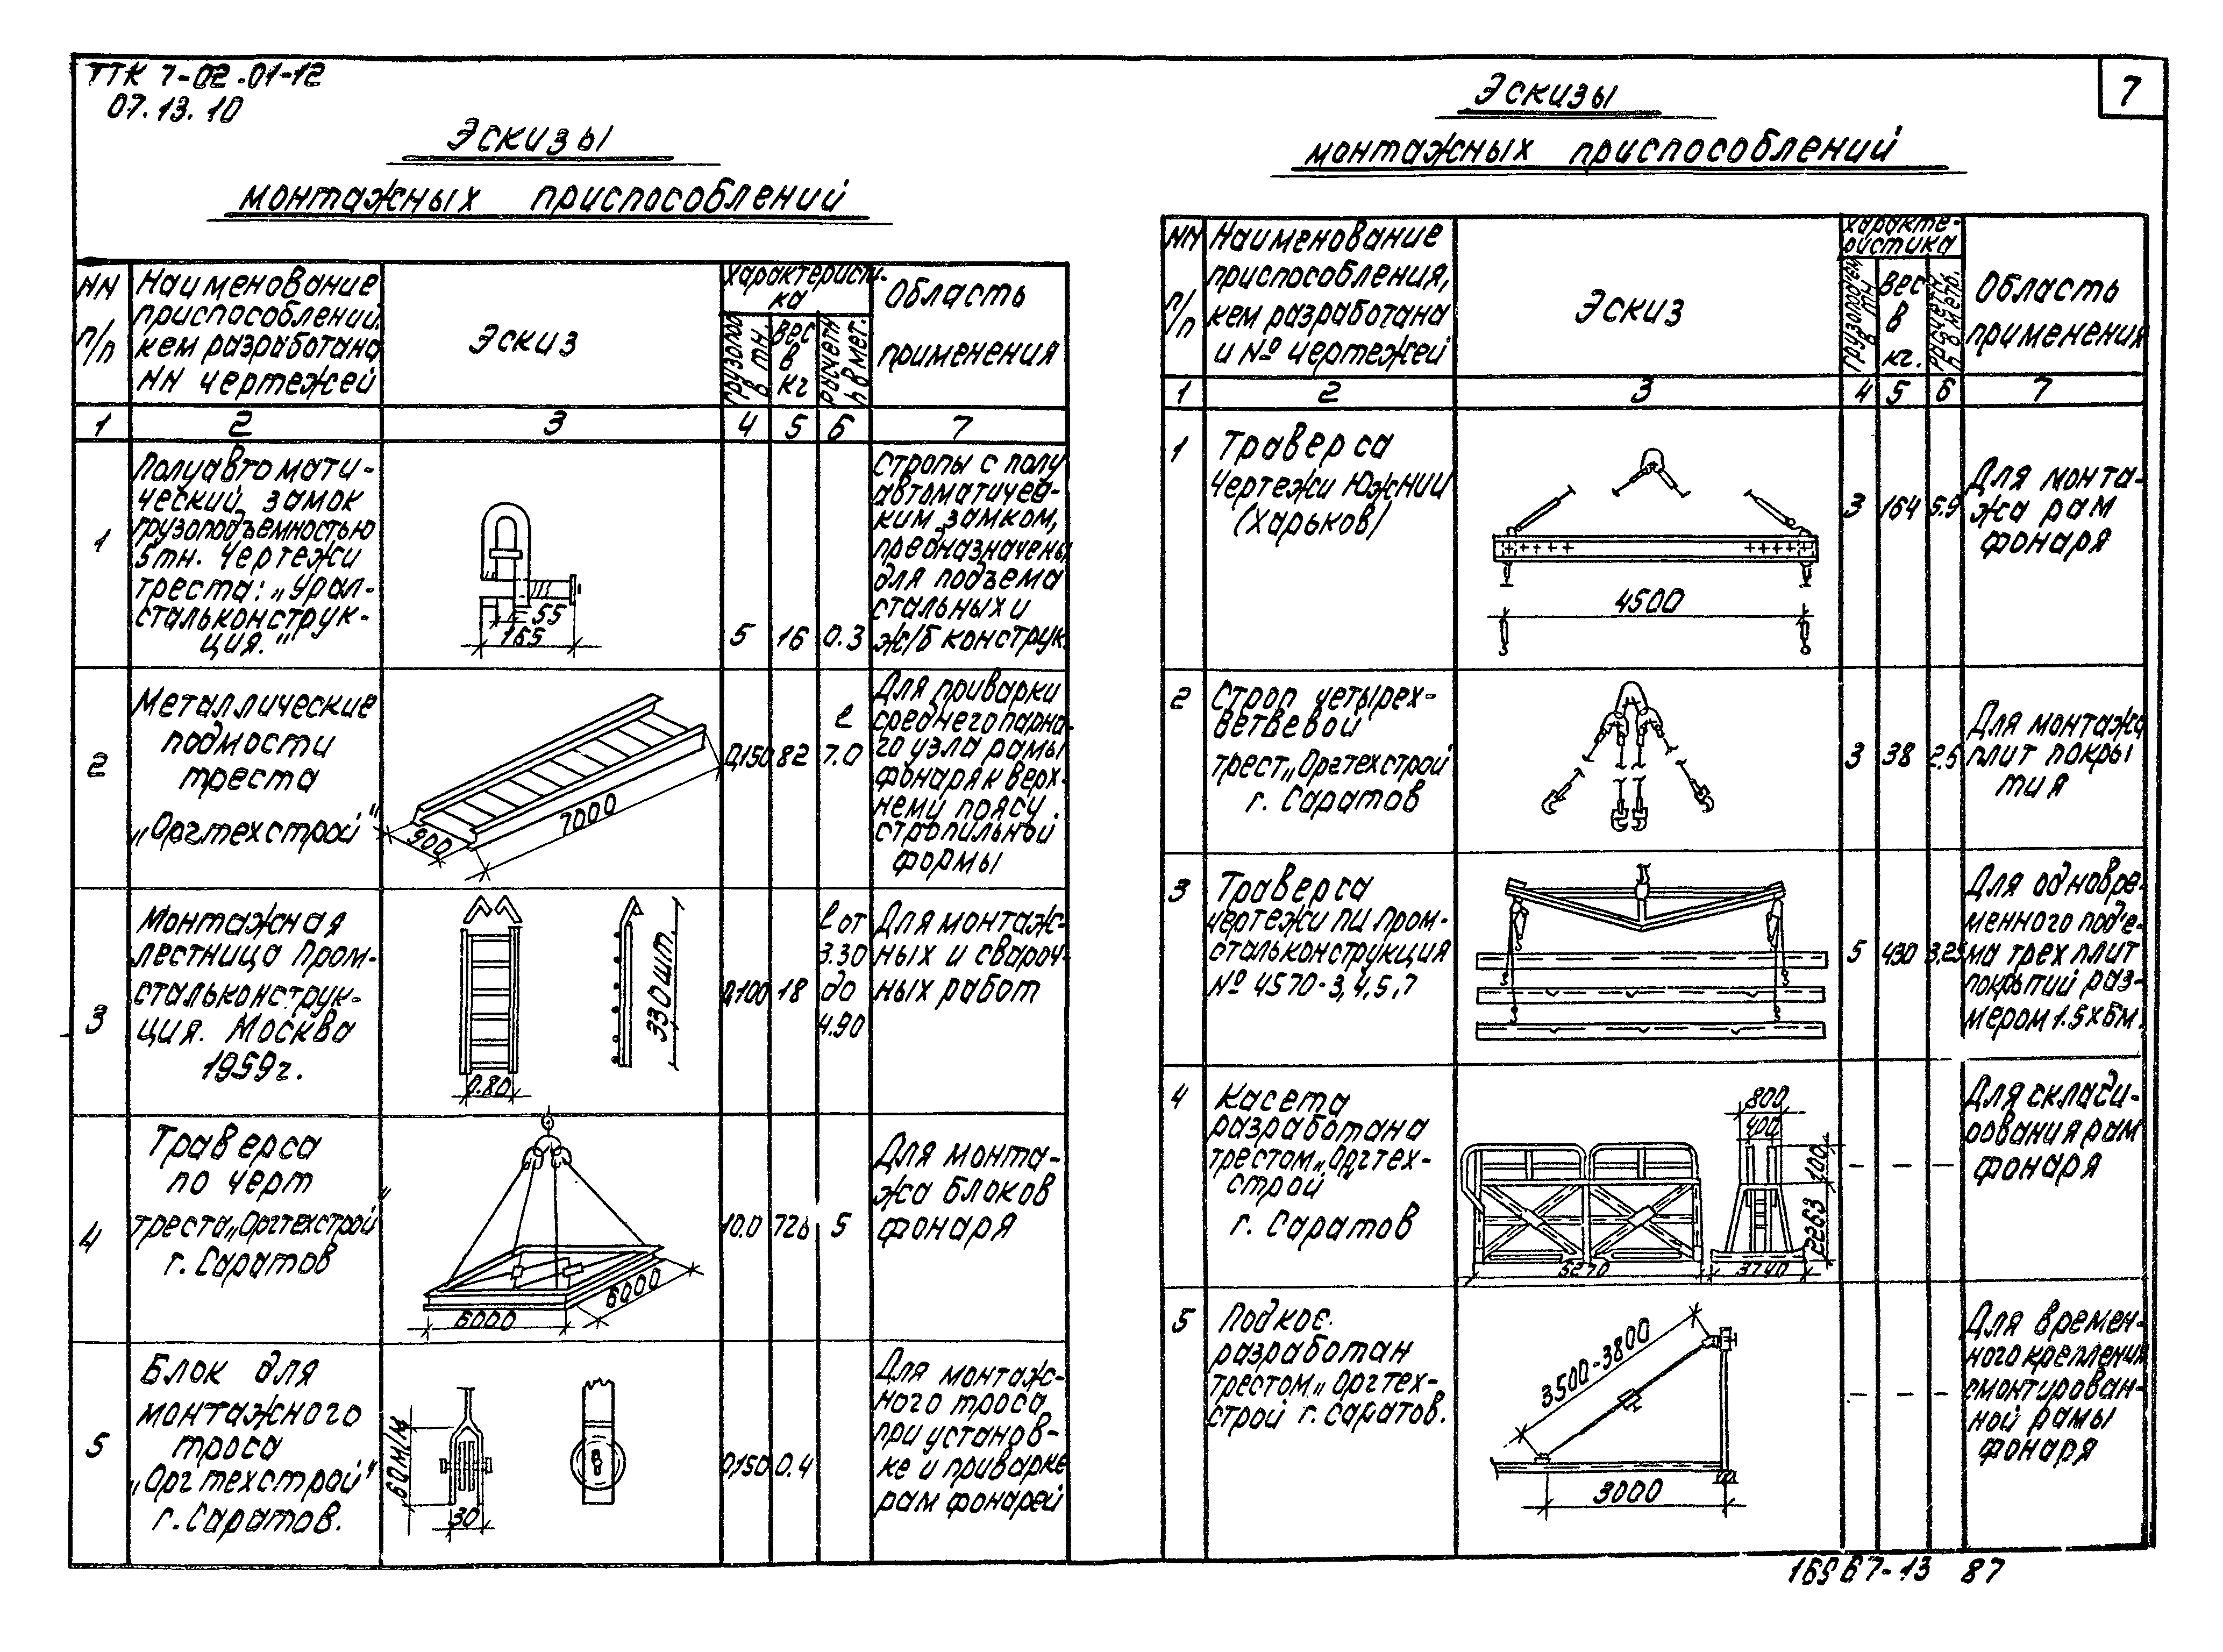 ТТК 7-02.01-12
07.13.10
7
Эскизы
монтажных приспособлений
NN п/п
Наименование
приспособлений,
кем разработана
NN чертежей
Эскиз
Характеристи-
ка
грузопод
в тн.
Вес
в
кг
расчетн
h в мет.
Область
применения
1 2 3 4 5 6 7
1
Полуавтомати-
ческий замок
грузоподъемностью
5тн. Чертежи
треста: „Урал-
стальконструк-
ция."
55
165
5 16 0.3
Стропы с полу
автоматичес-
ким замком,
предназначены
для подъема
стальных и
ж/б конструк.
2
Металлические
подмости
треста
„Оргтехстрой"
900
7000
0,150 82
ℓ
7.0
Для приварки
среднего парно-
го узла рамы
фонаря к верх-
нему поясу
стропильной
формы
3
Монтажная
лестница Пром-
стальконструк-
ция. Москва
1959г.
0.80
330шт.
0,100 18
ℓ от
3.30
до
4.90
Для монтаж-
ных и свароч-
ных работ
4
Траверса
по черт
треста „Оргтехстрой"
г. Саратов
6000
6000
10.0 726 5
Для монта-
жа блоков
фонаря
5
Блок для
монтажного
троса
„Оргтехстрой"
г. Саратов.
60м/м
30
0,150 0.4
Для монтаж-
ного троса
при установ-
ке и приварке
рам фонарей
Эскизы
монтажных приспособлений
NN п/п
Наименование
приспособления,
кем разработана
и № чертежей
Эскиз
Характе-
ристика
грузоподъем
в тн
Вес
в
кг.
расчетн.
h в метр.
Область
применения
1 2 3 4 5 6 7
1
Траверса
Чертежи ЮжНИИ
(Харьков)
4500
3 164 5.9
Для монта-
жа рам
фонаря
2
Строп четырех-
ветвевой
трест „Оргтехстрой
г. Саратов
3 38 2.5
Для монтажа
плит покры
тия
3
Траверса
чертежи ПИ Пром-
стальконструкция
№ 4570-3,4,5,7
5 430 3.25
Для одновре-
менного подъе-
ма трех плит
покрытий раз-
мером 1.5х6м.
4
Касета
разработана
трестом „Оргтех-
строй
г. Саратов
800
400
100
2263
5270
3740
– – –
Для склади-
рования рам
фонаря
5
Подкос.
разработан
трестом „Оргтех-
строй г. Саратов.
3500-3800
3000
– – –
Для времен-
ного крепления
смонтирован-
ной рамы
фонаря
16967-13 87